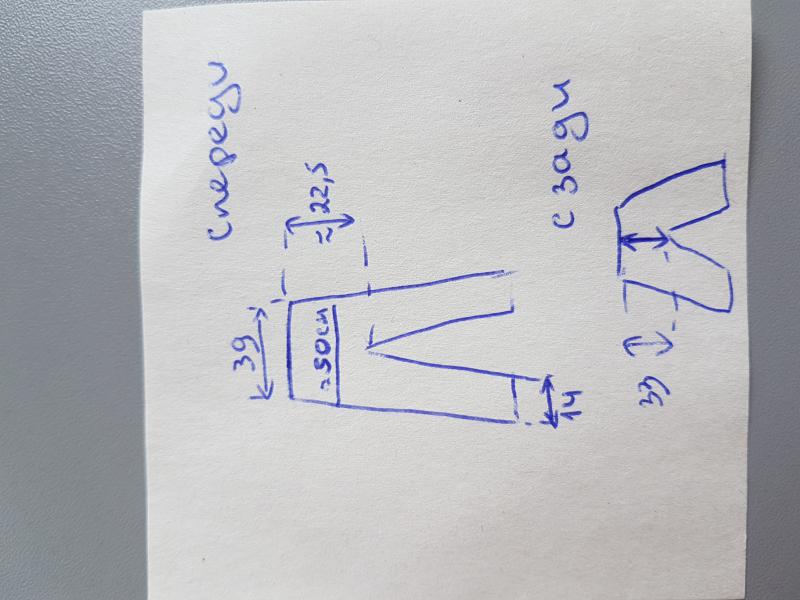 спереди
39
≈ 22,5
≈50см
14
сзади
33